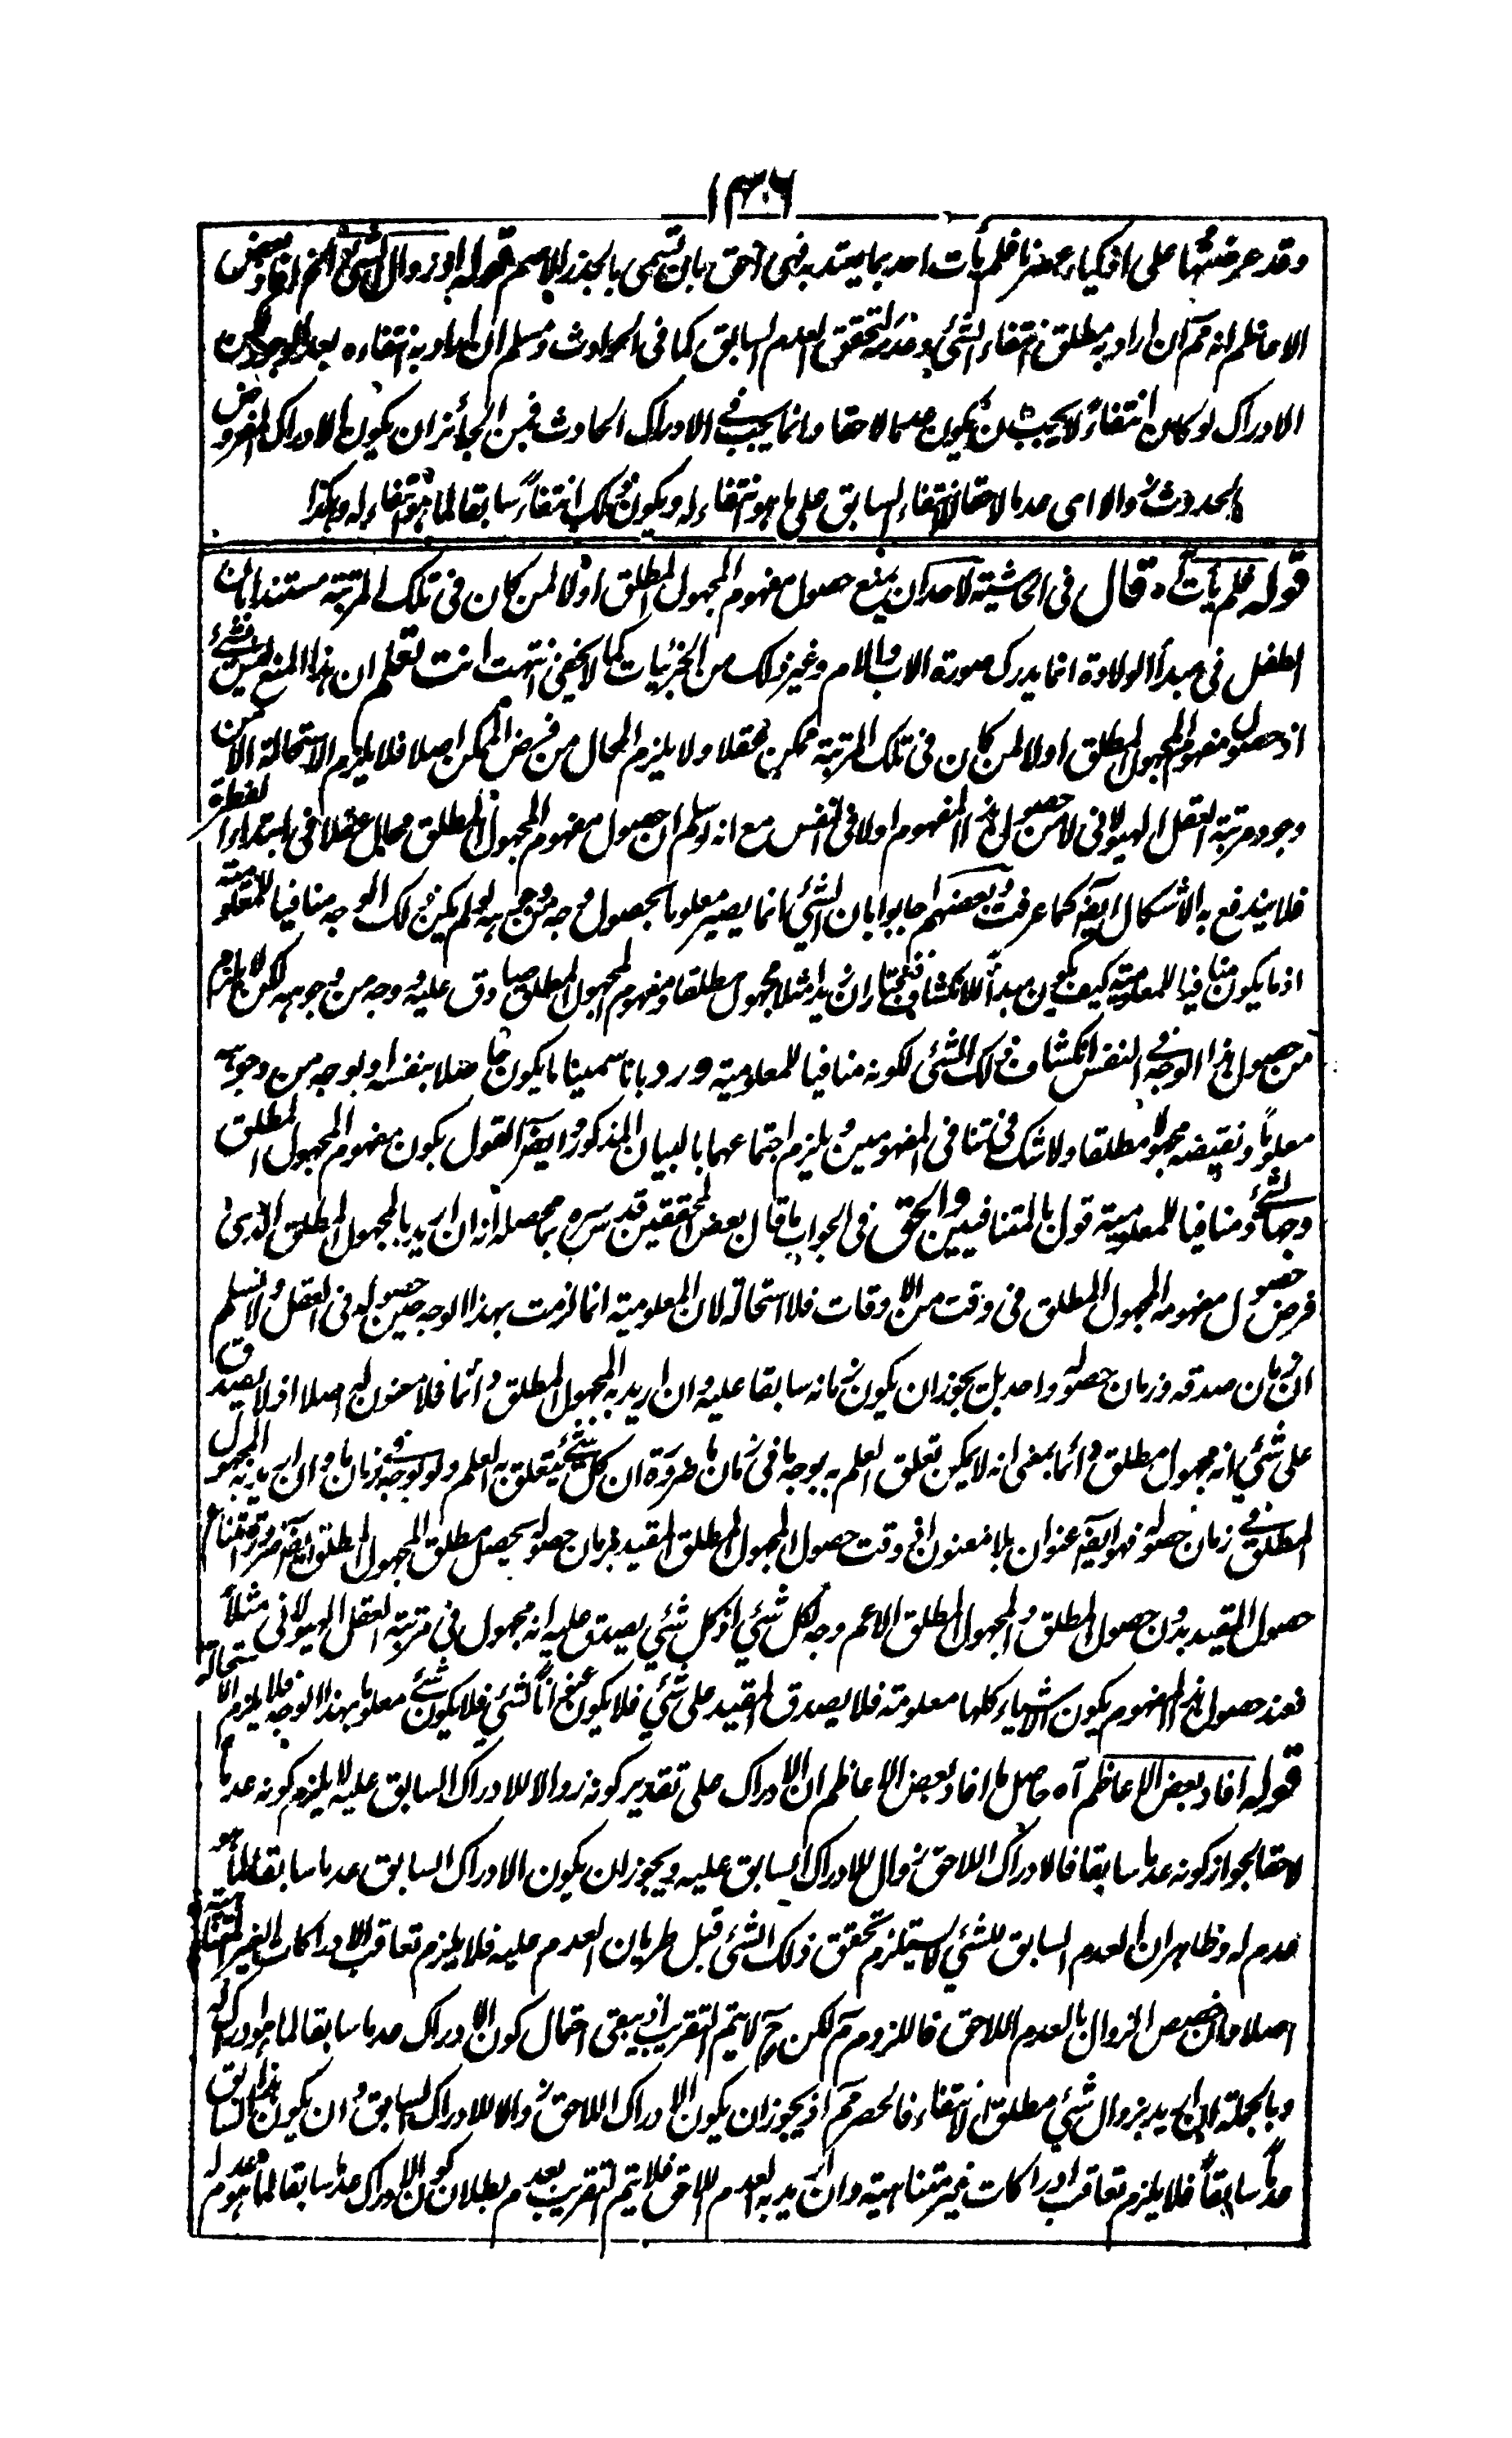 ١٣٠٦
وقد عرضتها على اذكياء عصرنا فلم يأت احد بما يعتد به فهى احق بان تسمى بالجذر الاصم قوله او زوال الشئ الخ افاد بعض
الاعاظم انه مم ان اراد به مطلق انتفاء الشئ وقدَمه لتحقق العدم السابق كما فى الحوادث ومسلم ان اراد به انتفاءه بعد الوجود لكن
الادراك لو كان انتفاءً لا يجب ان يكون عدما لاحقا وانما يجب فى الادراك الحادث فمن الجائز ان يكون الادراك المفروض
الحدوث زوالا اى عدما لاحقا لانتفاء السابق على ما هو انتفاء له ويكون ذلك انتفاءً سابقا لما هو انتفاء له وهكذا
قوله فلم يأت آه قال فى الحاشية لاحد ان يمنع حصول مفهوم المجهول المطلق اولا لمن كان فى تلك المرتبة مستندا بان
الطفل فى مبدأ الولادة انما يدرك صورة الاب والام وغير ذلك من الجزئيات كما لا يخفى انتهت انت تعلم ان هذا المنع ليس بشئ
اذ حصول مفهوم المجهول المطلق اولا لمن كان فى تلك المرتبة ممكن عقلا ولا يلزم المحال من فرض الممكن اصلا فلا يلزم الاستحالة الا من
وجود مرتبة العقل الهيولانى لا من حصول هذا المفهوم اولا فى النفس مع انه لو سلم ان حصول مفهوم المجهول المطلق محال عقلا فى ابتداء الفطرة
فلا يندفع به الاشكال ايضا كما عرفت وبعضهم اجابوا بان الشئ انما يصير معلوما بحصول وجه من وجوهه لو لم يكن ذلك الوجه منافيا للمعلومية
اذ ما يكون منافيا للمعلومية كيف يكون مبدأً للانكشاف فنختار ان زيدا مثلا مجهول مطلقا ومفهوم المجهول المطلق صادق عليه ووجه من وجوهه لكن لا يلزم
من حصول هذا الوجه فى النفس انكشاف ذلك الشئ لكونه منافيا للمعلومية ورد بانا سمينا ما يكون حاصلا بنفسه او بوجه من وجوهه
معلوماً ونقيضه مجهولا مطلقا ولا شك فى تنافى المفهومين ويلزم اجتماعهما بالبيان المذكور وايضا القول بكون مفهوم المجهول المطلق
وجها لشئ ومنافيا للمعلومية قول بالمتنافيين والحق فى الجواب ما قال بعض المحققين قدس سره بما محصله انه ان اريد بالمجهول المطلق الذى
فرض حصول مفهومه المجهول المطلق فى وقت من الاوقات فلا استحالة لان المعلومية انما لزمت بهذا الوجه حين حصوله فى العقل ولا نسلم
ان زمان صدقه وزمان حصوله واحد بل يجوز ان يكون زمانه سابقا عليه وان اريد به المجهول المطلق دائما فلا معنون له اصلا اذ لا يصدق
على شئ انه مجهول مطلق دائما بمعنى انه لا يمكن تعلق العلم به بوجه ما فى زمان ما ضرورة ان كل شئ يتعلق به العلم ولو بوجه فى زمان ما وان اريد به المجهول
المطلق فى زمان حصوله فهو ايضا عنوان بلا معنون اذ فى وقت حصول المجهول المطلق المقيد بزمان حصوله يحصل مطلق المجهول المطلق ايضا ضرورة امتناع
حصول المقيد بدون حصول المطلق والمجهول المطلق الاعم وجه لكل شئ اذ كل شئ يصدق عليه انه مجهول فى مرتبة العقل الهيولانى مثلاً
فعند حصول هذا المفهوم يكون الاشياء كلها معلومة فلا يصدق المقيد على شئ فلا يكون عنواناً لشئ فلا يكون شئ معلوما بهذا الوجه فلا يلزم الاستحالة
قوله افاد بعض الاعاظم آه حاصل ما افاد بعض الاعاظم ان الادراك على تقدير كونه زوالا للادراك السابق عليه لا يلزم كونه عدماً
لاحقا لجواز كونه عدما سابقا فالادراك اللاحق زوال للادراك السابق عليه ويجوز ان يكون الادراك السابق عدما سابقا لما هو
عدم له وظاهر ان العدم السابق للشئ لا يستلزم تحقق ذلك الشئ قبل طريان العدم عليه فلا يلزم تعاقب الادراكات الغير المتناهية
اصلا وان خصص الزوال بالعدم اللاحق فاللزوم مم لكن ح لا يتم التقريب اذ يبقى احتمال كون الادراك عدما سابقا لما هو ادراك له
وبالجملة ان اريد بزوال شئ مطلق الانتفاء فالحصر مم اذ يجوز ان يكون الادراك اللاحق زوالا للادراك السابق وان يكون هذا السابق
عدماً سابقاً فلا يلزم تعاقب ادراكات غير متناهية وان اريد به العدم اللاحق فلا يتم التقريب بعدم بطلان كون الادراك عدما سابقا لما هو عدم له